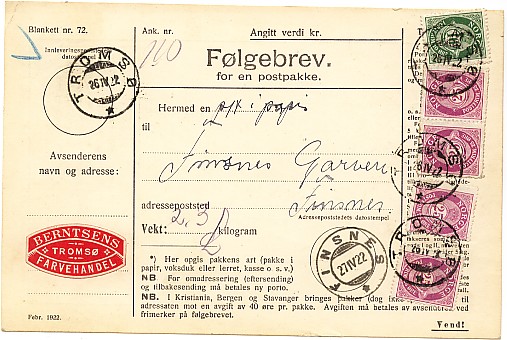 Blankett nr. 72.
Ank. nr.
Angitt verdi kr.
Innleveringspoststedets
datostempel.
110
Følgebrev.
for en postpakke.
TROMSØ
26 IV 22
Hermed en pkk i papir
til
Finsnes Garveri
Finsnes
Avsenderens
navn og adresse:
adressepoststed
Adressepoststedets datostempel.
Vekt: 2,3 kilogram
BERNTSENS
TROMSØ
FARVEHANDEL
FINSNES
27 IV 22
*) Her opgis pakkens art (pakke i
papir, voksduk eller lerret, kasse o. s. v.)
NB. For omadressering (eftersending)
og tilbakesending må betales ny porto.
NB. I Kristiania, Bergen og Stavanger bringes pakker
adressaten mot en avgift av 40 øre pr. pakke. Avgiften må betales av avsenderen ved
frimerker på følgebrevet.
Febr. 1922.
Vend!
TROMSØ
26 IV 22
TROMSØ
26 IV 22
TROMSØ
26 IV 22